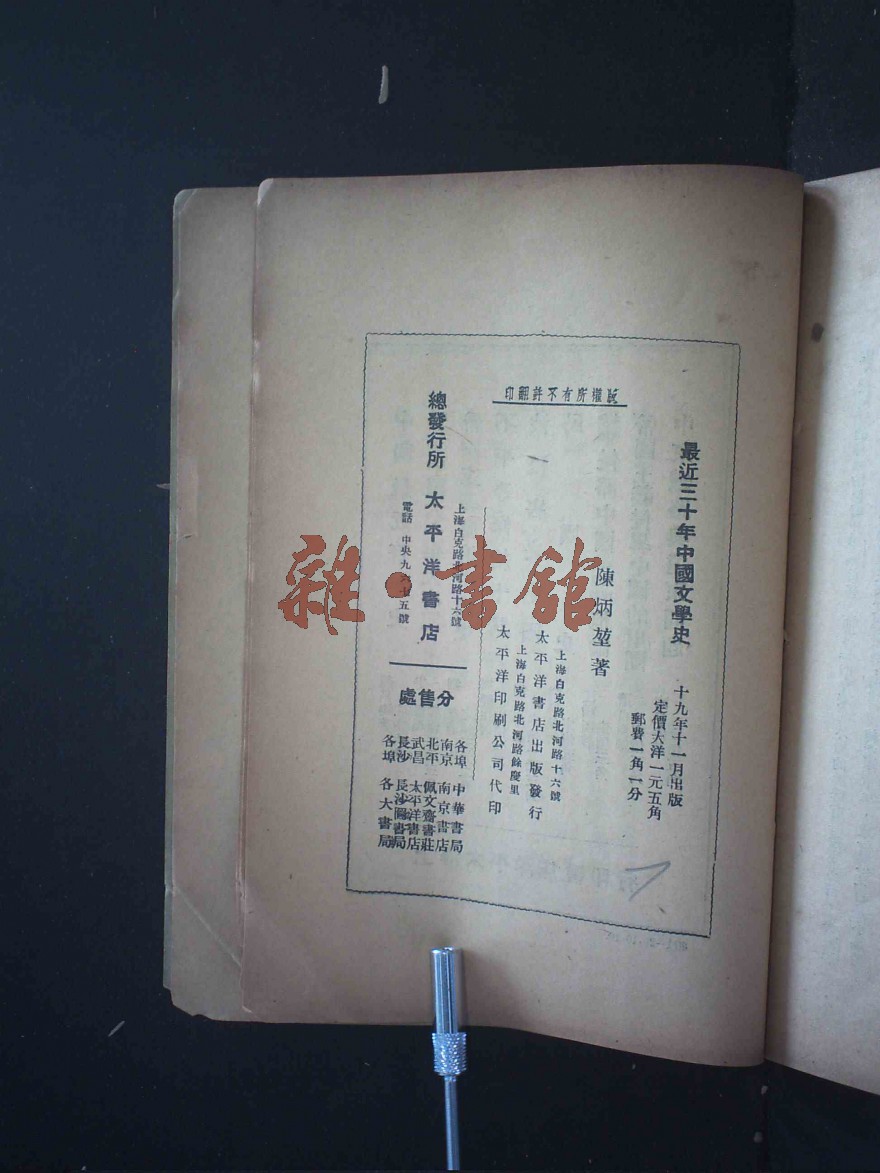 版權所有不許翻印
最近三十年中國文學史
十九年十一月出版
定價大洋一元五角
郵費一角一分
陳炳堃著
上海白克路北河路十六號
太平洋書店出版發行
上海白克路北河路餘慶里
太平洋印刷公司代印
上海白克路北河路十六號
總發行所 太平洋書店
電話 中央九六七五號
分售處
各埠 中華書局
南京 南京書店
北平 佩文齋書莊
武昌 太平洋書店
長沙 長沙圖書局
各埠 各大書局
雜·書館